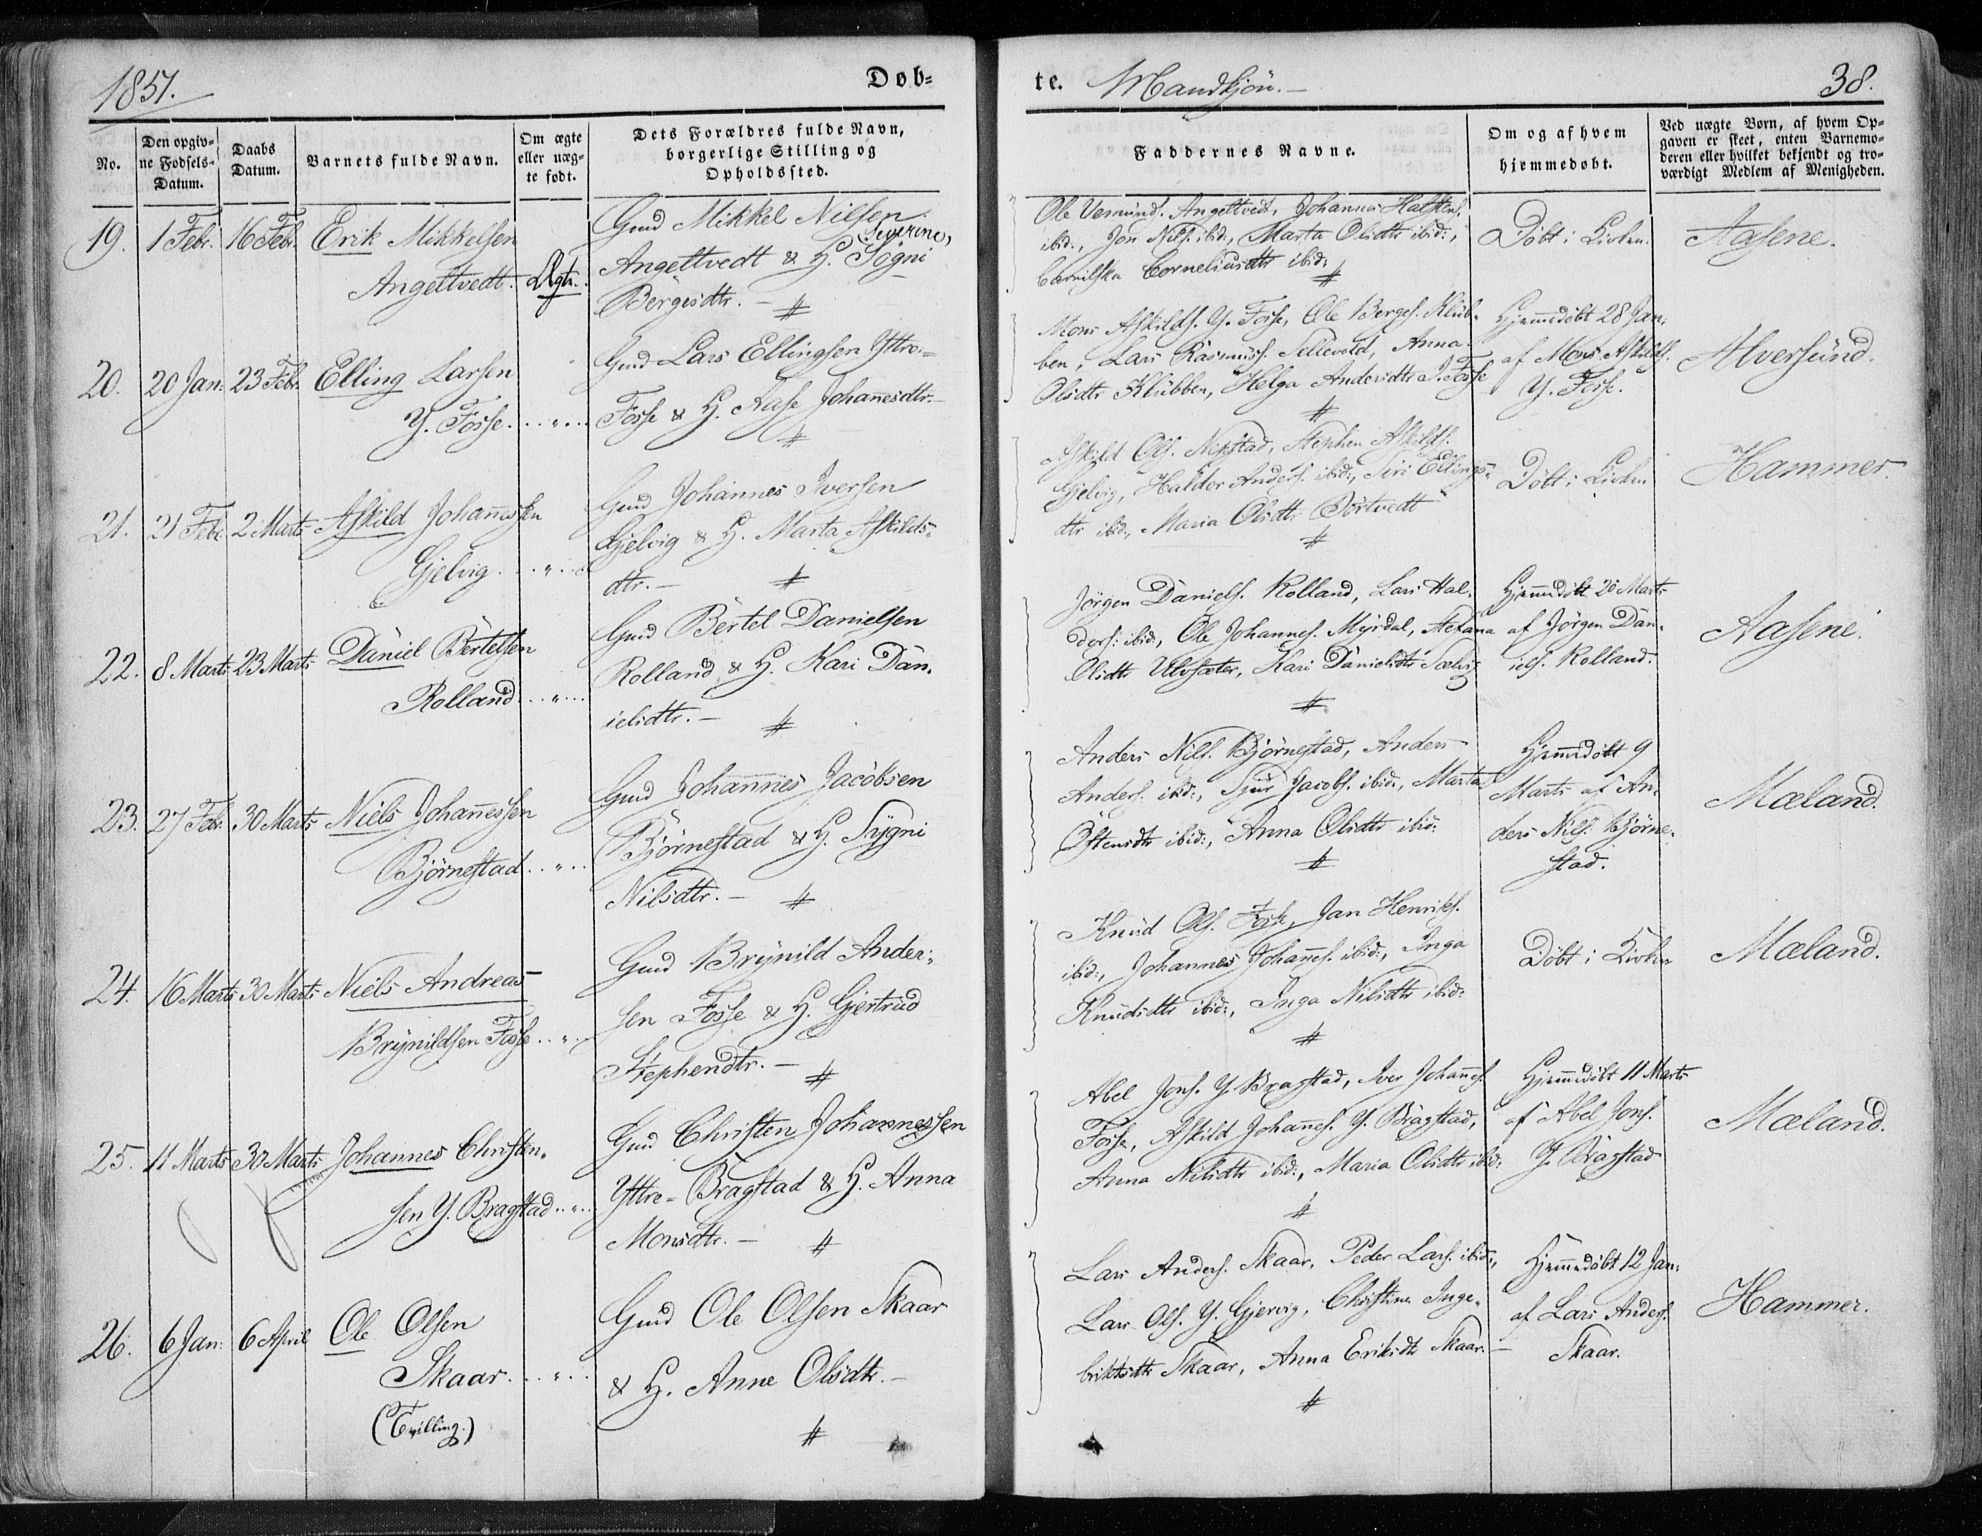 1851.
Døb=
te.
Mandkjön.
38.
No.
Den opgiv-
ne Fødsels-
Datum.
Daabs
Datum.
Barnets fulde Navn.
Om ægte
eller uæg-
te født.
Dets Forældres fulde Navn,
borgerlige Stilling og
Opholdssted.
Faddernes Navne.
Om og af hvem
hjemmedøbt.
Ved uægte Børn, af hvem Op-
gaven er skeet, enten Barnemo-
deren eller hvilket bekjendt og tro-
værdigt Medlem af Menigheden.
19. 1 Febr. 16 Febr. Erik Mikkelsen
Angeltvedt. Ægte.
Gmd Mikkel Nilsen
Severine,
Angeltvedt & H. Sögni
Börgesdtr. — #
Ole Vemund. Angeltvedt, Johannes Halstens.
ibid:, Jon Nils. ibid:, Marta Olsdtr ibid:,
Corneliusdtr ibid: #
Döbt i Kirken.
Aasene.
20. 20 Jan. 23 Febr. Elling Larsen
Y. Fosse. .. " ...
Gmd Lars Ellingsen Yttre-
Fosse & H. Aase Johannesdtr. —
#
Mons Askilds. Y. Fosse, Ole Börges. Klüb-
ben, Lars Rasmüss. Anna
Olsdtr Klübben, Helga Andersdtr Y. Fosse
#
Hjemmedöbt 28 Jan:
af Mons Askilds.
Y. Fosse.
Alversund.
21. 21 Febr. 2 Marts Askild Johannessen
Gjelvig. .. " ...
Gmd Johannes Iversen
Gjelvig & H. Marta Askilds-
dtr. — #
Askild Ols. Nepstad, Stephen Askilds.
Gjelvig, Haldor Anders. ibid:, Siri Ellings-
dtr ibid:, Maria Olsdtr Börtvedt
#
Döbt i Kirken
Hammer.
22. 8 Marts 23 Marts Daniel Bertelsen
Rolland. .. " ...
Gmd Bertel Danielsen
Rolland & H. Kari Dan-
ielsdtr. — #
Jörgen Daniels. Rolland, Lars Hal-
dors. ibid:, Ole Johannes. Myrdal,
Olsdtr Ulvsæter, Kari Danielsdtr Sælvig
#
Hjemmedöbt 20 Marts
af Jörgen Dan-
iels. Rolland.
Aasene.
23. 27 Feb. 30 Marts Niels Johannessen
Björnestad. .. " ...
Gmd Johannes Jacobsen
Björnestad & H. Sygni
Nilsdtr. — #
Anders Nils. Björnestad, Anders
Anders. ibid:, Sjur Jacobs. ibid:, Marta
Östensdtr ibid:, Anna Olsdtr ibid:
#
Hjemmedöbt 9
Marts af An-
ders Nils. Björne-
stad.
Mæland.
24. 16 Marts 30 Marts Niels Andreas
Brynildsen Fosse .. " ..
Gmd Brynild Ander-
sen Fosse & H. Gjertrud
Stephensdtr. — #
Knud Ols. Fosse, Jan Henriks.
ibid:, Johannes Johannes. ibid:, Inga
Knudsdtr ibid:, Inga Nilsdtr ibid:
#
Döbt i Kirken
Mæland.
25. 11 Marts 30 Marts Johannes Christen-
sen Y. Bragstad .. " ..
Gmd Christen Johannessen
Yttre- Bragstad & H. Anna
Monsdtr. — #
Abel Jons. Y. Bragstad, Iver Johannes.
Fosse, Askild Johannes. Y. Bragstad,
Anna Nilsdtr ibid:, Maria Olsdtr ibid:
#
Hjemmedöbt 11 Marts
af Abel Jons.
Y. Bragstad
Mæland.
26. 6 Jan: 6 April Ole Olsen
Skaar. .. " ..
(Tvilling.)
Gmd Ole Olsen Skaar
& H. Anne Olsdtr. —
#
Lars Anders. Skaar, Peder Lars. ibid:,
Lars Ols. Y. Gjervig, Christina Inge-
briktsdtr Skaar, Anna Eriksdtr Skaar. —
#
Hjemmedöbt 12 Jan:
af Lars Anders.
Skaar.
Hammer.